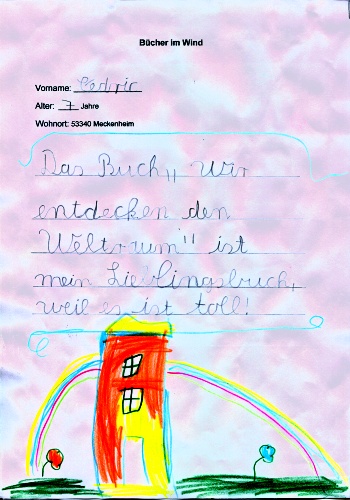 Bücher im Wind
Vorname:
Alter: 7 Jahre
Wohnort: 53340 Meckenheim
Das Buch „ Wir
entdecken den
Weltraum" ist
mein Lieblingsbuch,
weil es ist toll!